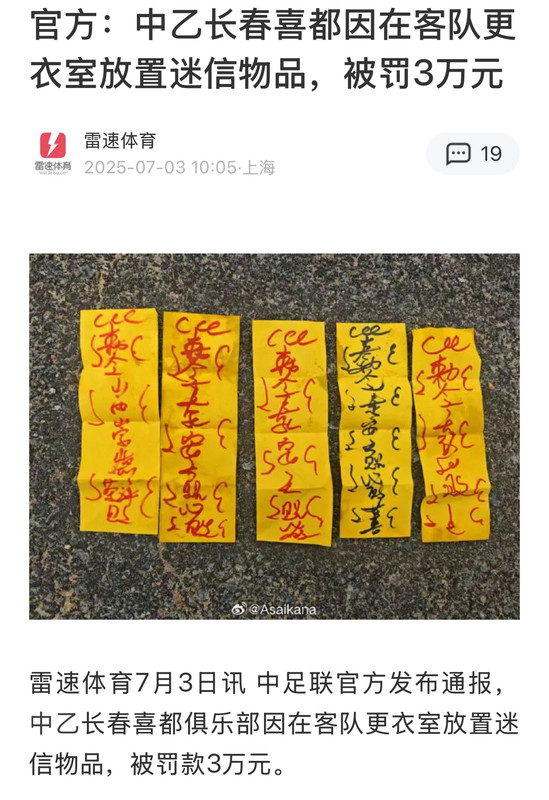 官方：中乙长春喜都因在客队更
衣室放置迷信物品，被罚3万元
雷速体育
雷速体育
2025-07-03 10:05·上海
19
@Asaikana
雷速体育7月3日讯 中足联官方发布通报，
中乙长春喜都俱乐部因在客队更衣室放置迷
信物品，被罚款3万元。